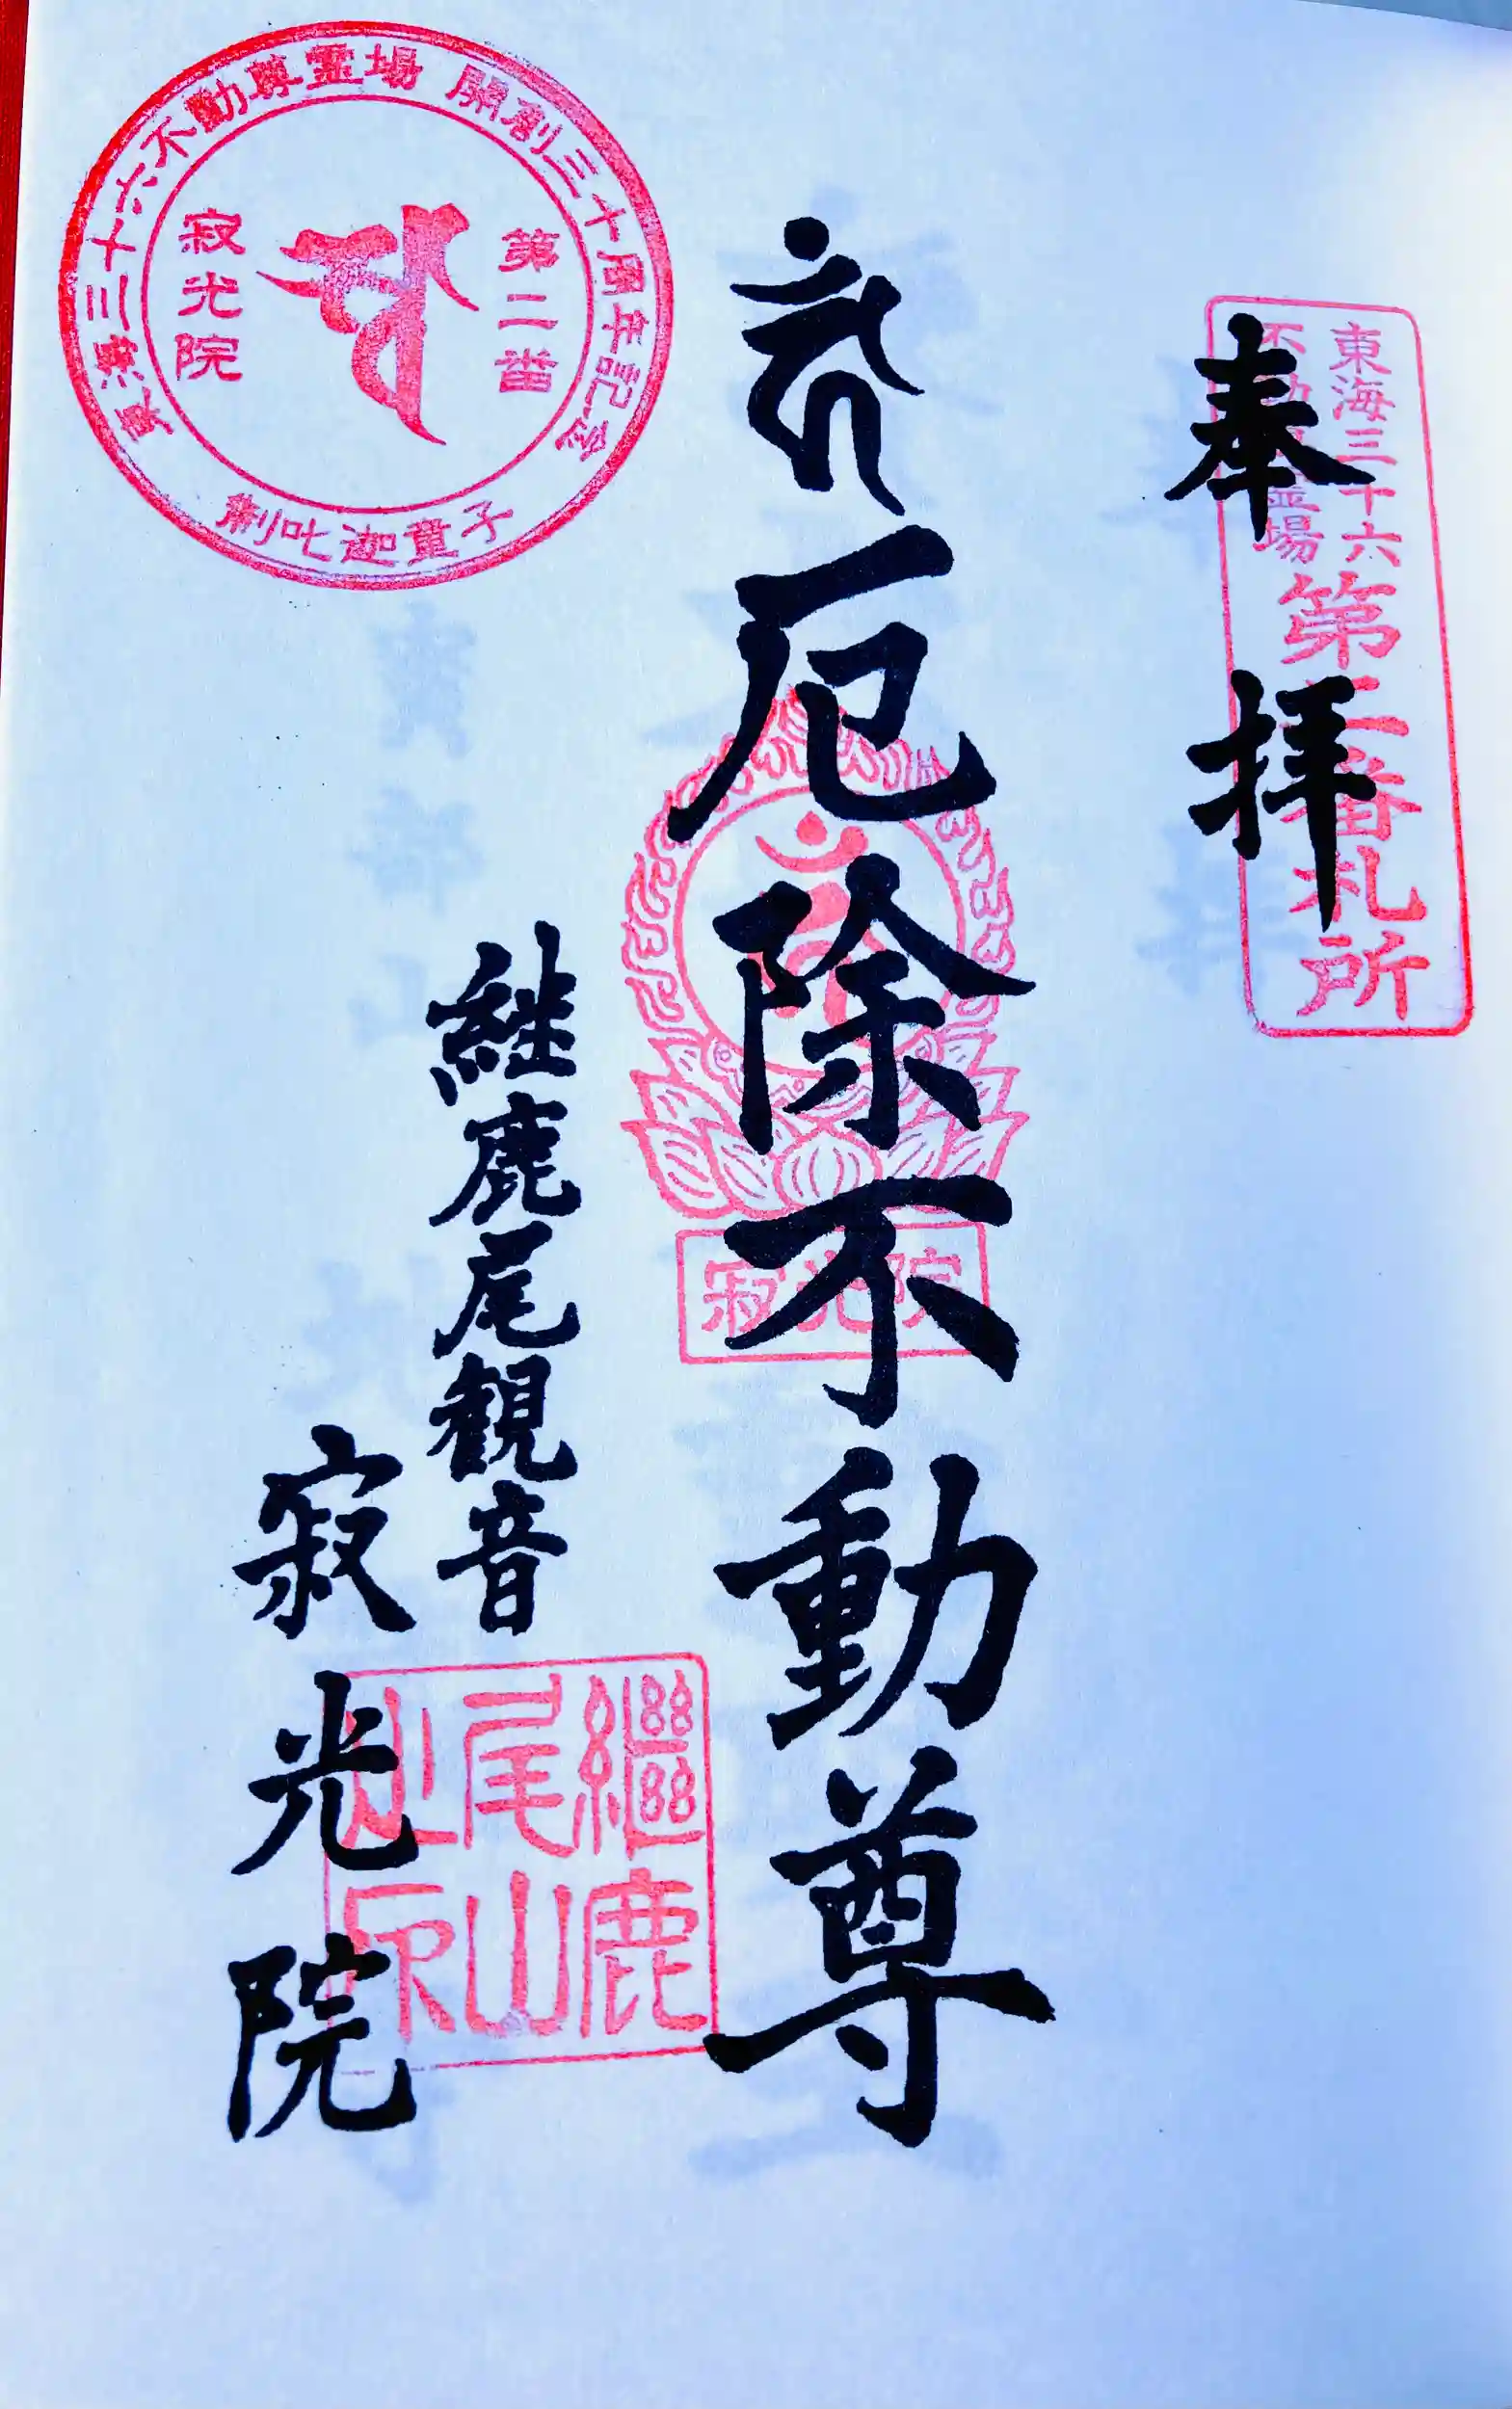 奉拝
東海三十六
不動尊霊場
第二番札所
厄除不動尊
継鹿尾観音
寂光院
東海三十六不動尊霊場 開創三十周年記念
第二番
寂光院
制吒迦童子
寂光院
繼鹿
尾山